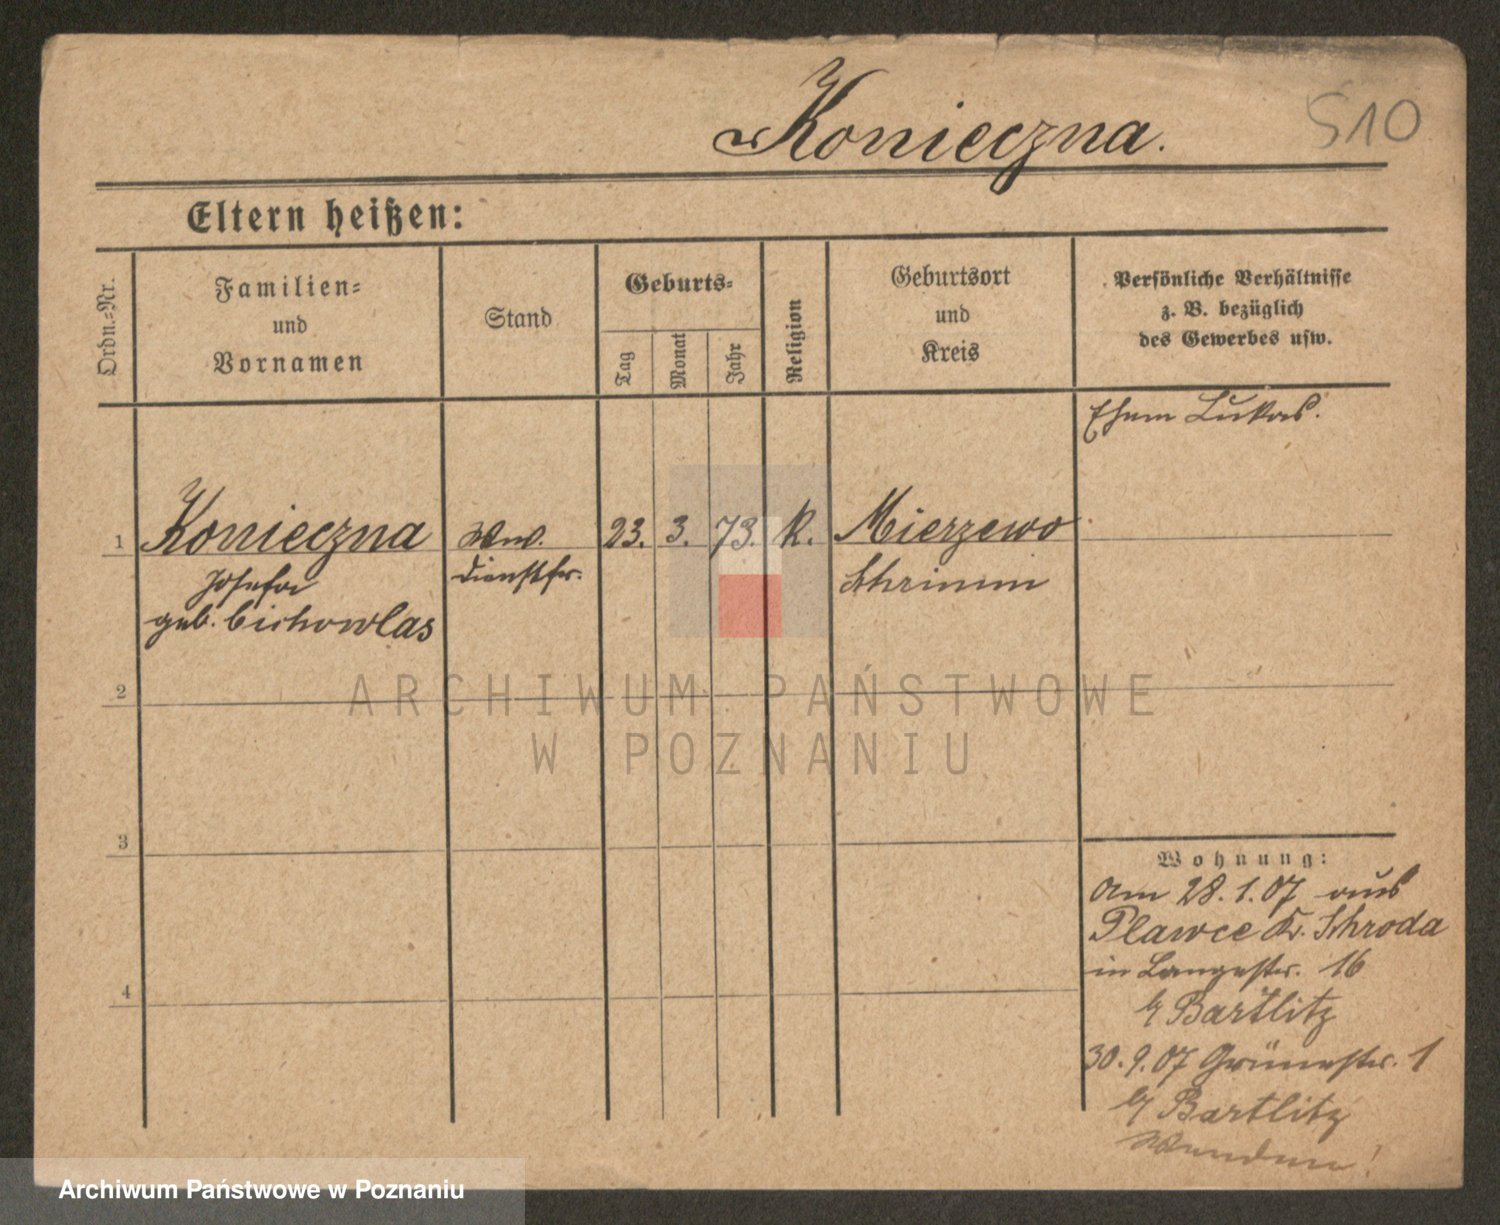 Konieczna.
510
Eltern heißen:
Ordn.-Nr.
Familien-
und
Vornamen
Stand
Geburts-
Tag
Monat
Jahr
Religion
Geburtsort
und
Kreis
Persönliche Verhältnisse
z. B. bezüglich
des Gewerbes usw.
Ehem Lukas.
1 Konieczna Ww. 23. 3. 73. k. Mierzewo
Josefa Dienstfr. Schrimm
geb. Cichowlas
2
ARCHIWUM PAŃSTWOWE
W POZNANIU
3
Wohnung:
Am 28.1.07 aus
Plawce Kr. Schroda
in Langestr. 16
b/ Bartlitz
4
30.9.07 Grünestr. 1
b/ Bartlitz
Wenden!
Archiwum Państwowe w Poznaniu